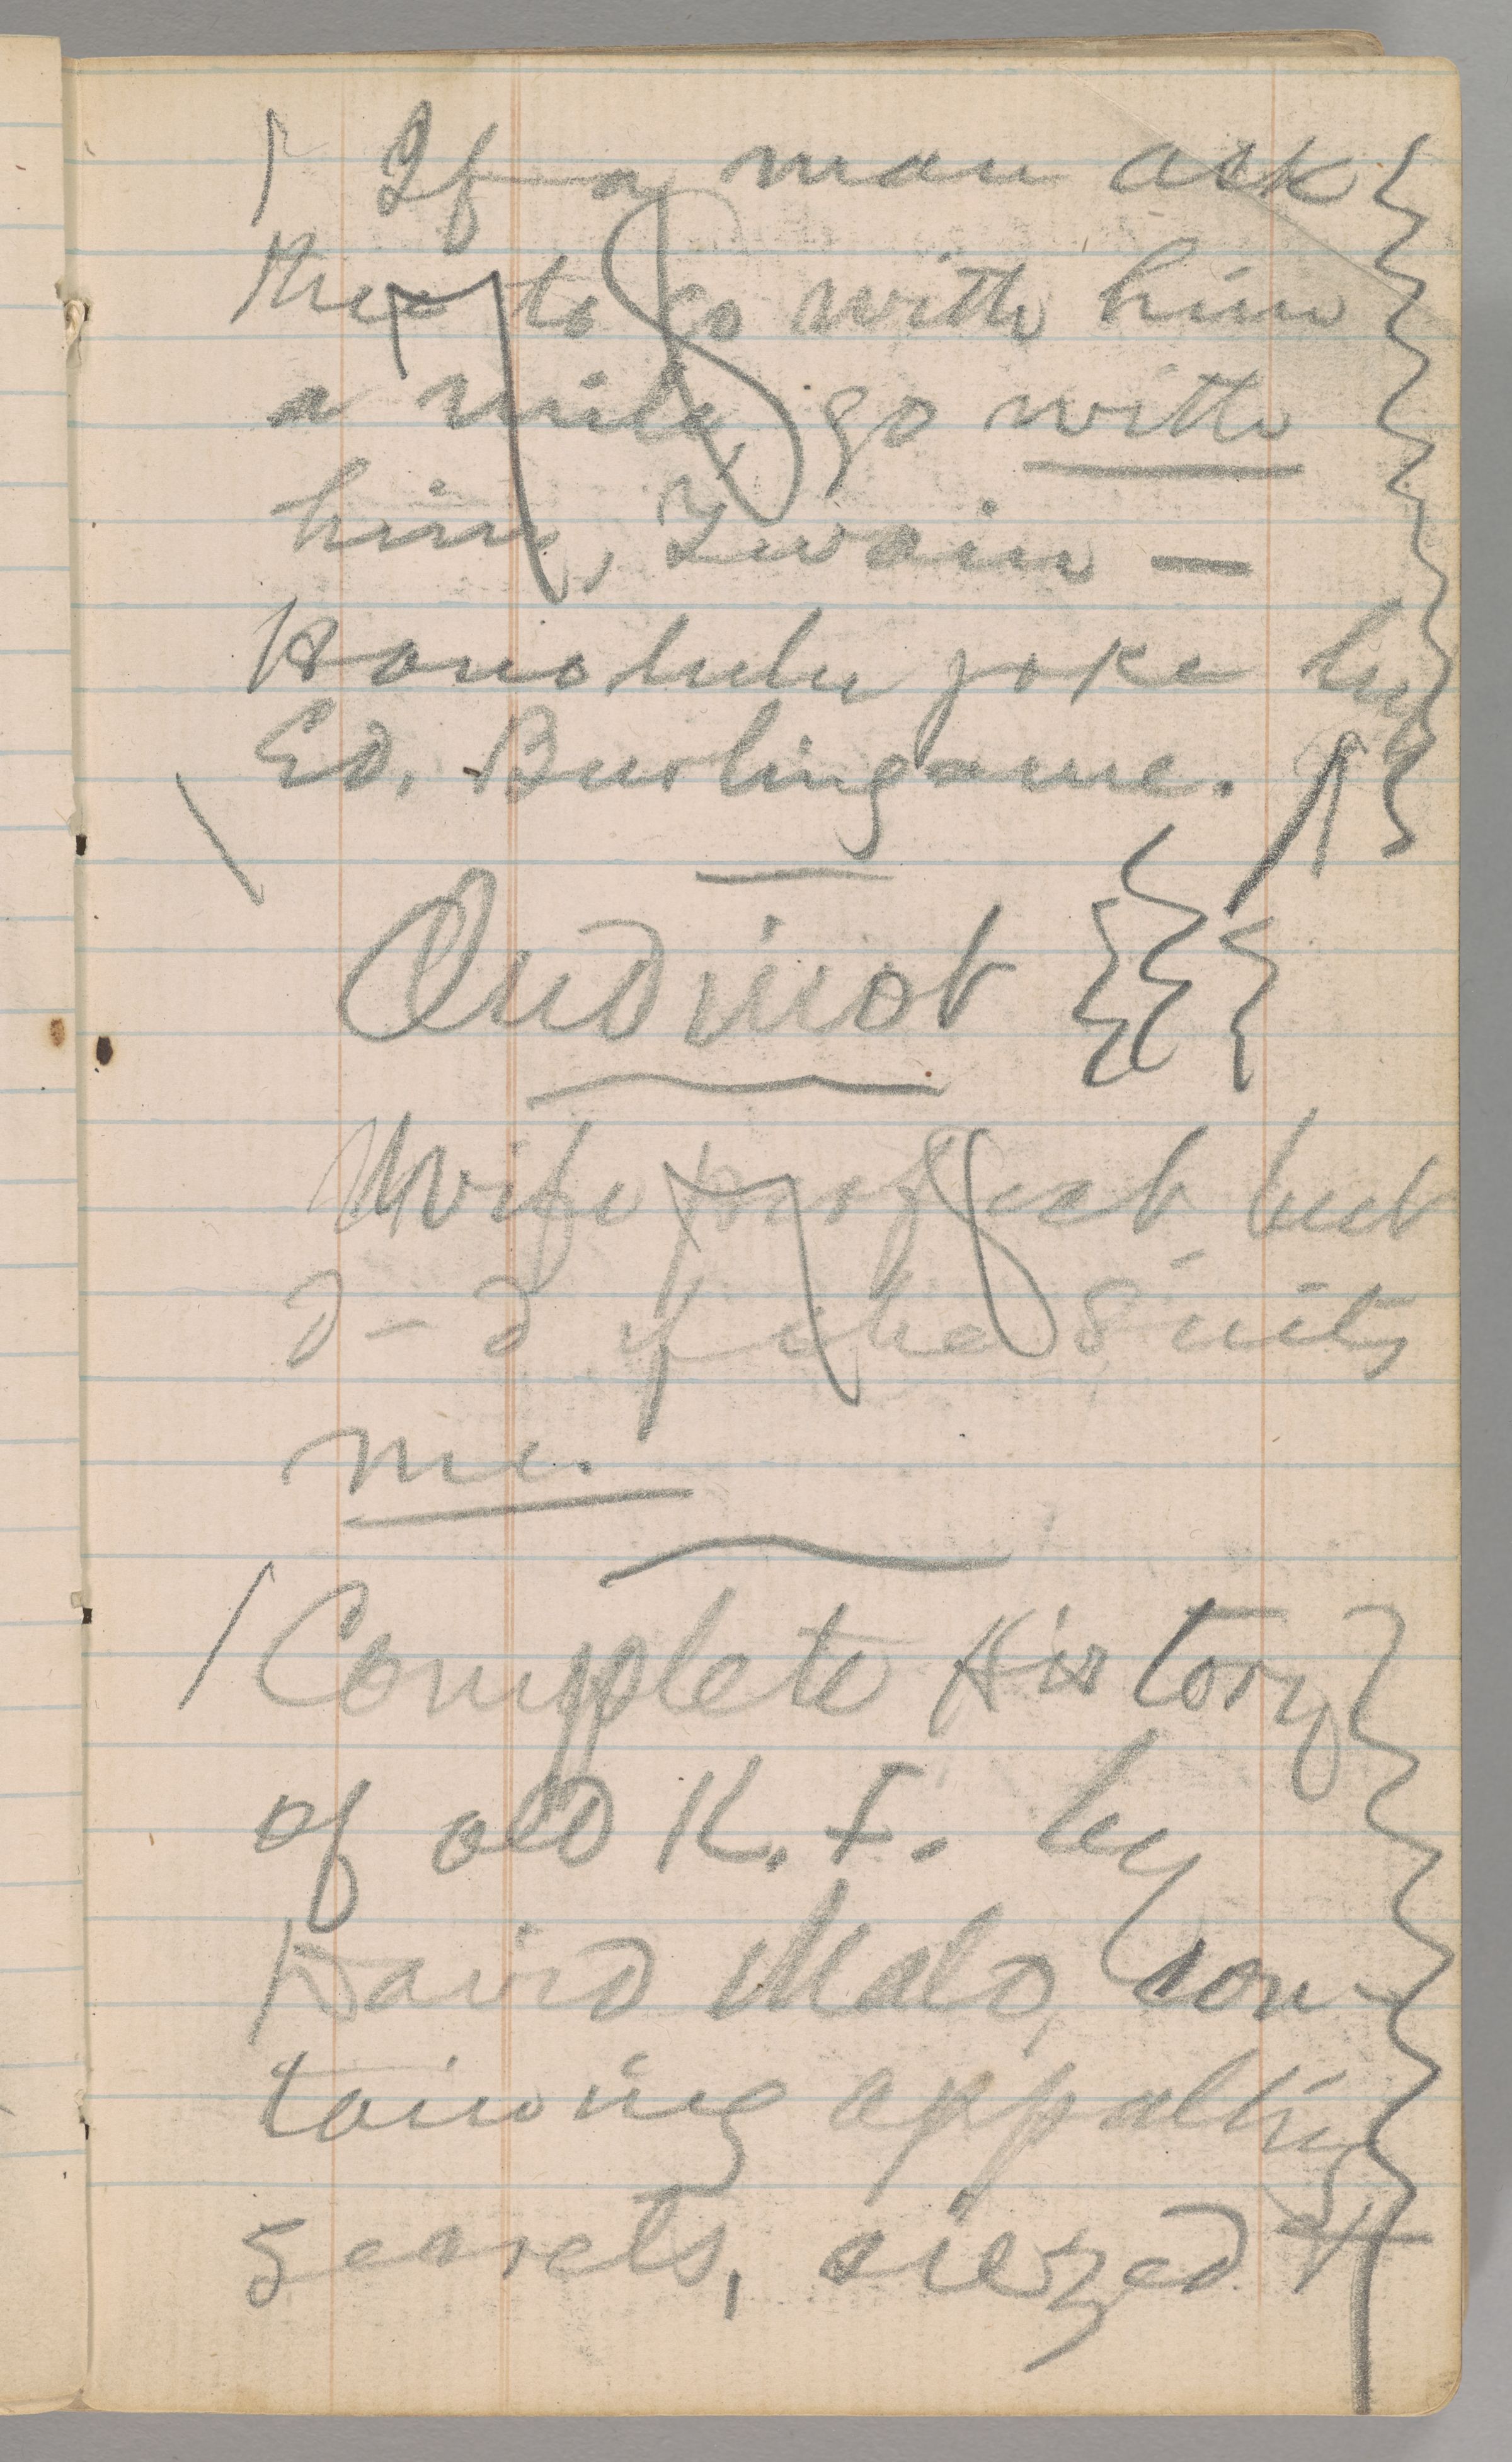 If a man ask
thee to go with him
a mile, go with
him, Twain —
Honolulu joke by
Ed. Burlingame.
Oudinot
Wife perfect but
d–d if she suits
me.
Complete History
of old K. I. by
David Malo, con-
taining appalling
secrets, siezed &